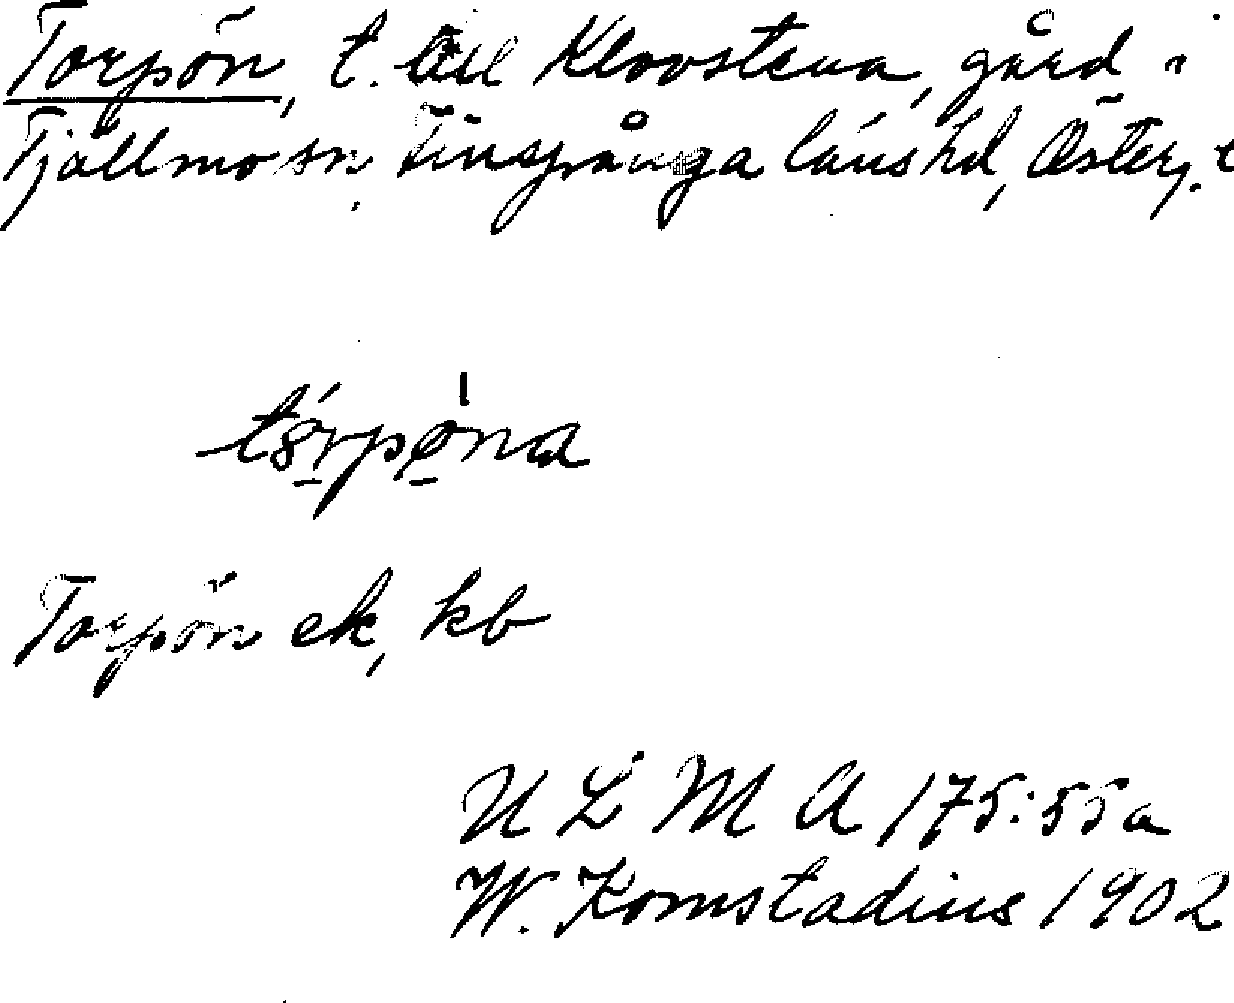 Torpön, t. till Klovstena, gård i
Tjällmo sn, Finspånga läns hd, Österg.
Torpön ek, kb
ULMA 175:55a
W. Komstadius 1902